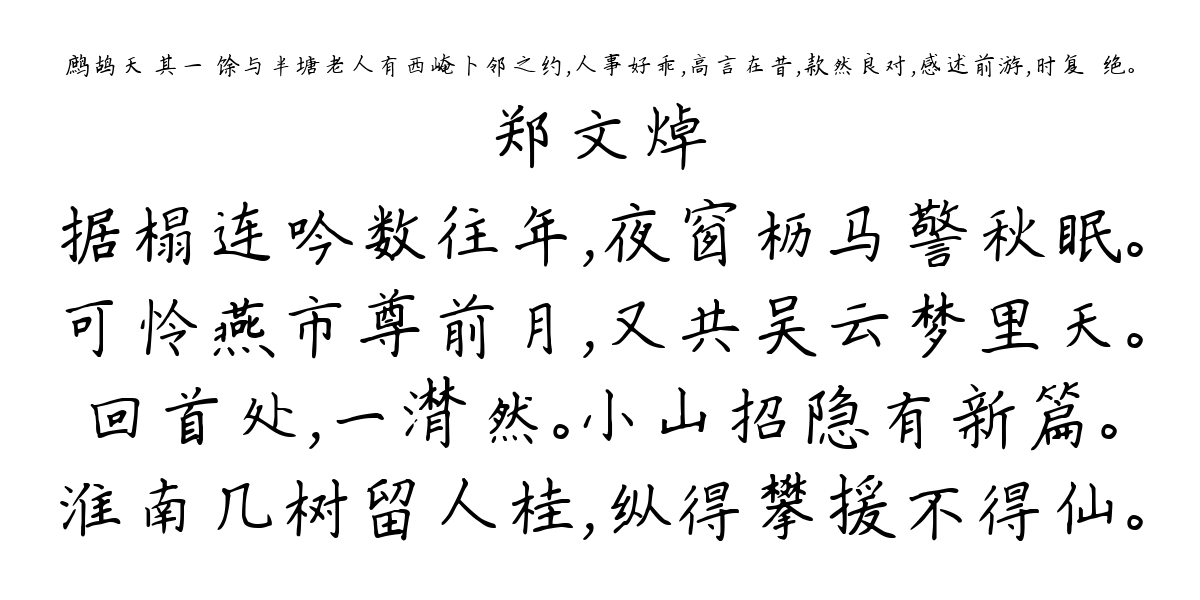 鹧鸪天 其一 馀与半塘老人有西崦卜邻之约,人事好乖,高言在昔,款然良对,感述前游,时复 绝。
郑文焯
据榻连吟数往年,夜窗枥马警秋眠。
可怜燕市尊前月,又共吴云梦里天。
回首处,一潸然。小山招隐有新篇。
淮南几树留人桂,纵得攀援不得仙。